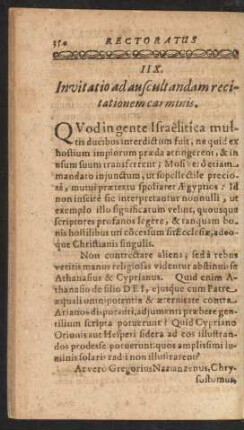 354 RECTORATUS
IIX.
Invitatio ad auscultandam reci-
tationem carminis.
QVod in gente Israëlitica mul-
tis ducibus interdictum fuit, ne quid ex
hostium impiorum præda attingerent, & in
usum suum transferrent; Mosi verò etiam
mandato injunctum, ut supellectile precio-
sâ, mutui prætextu spoliaret Ægyptios: Id
non inscité sic interpretantur nonnulli, ut
exemplo illo significatum velint, quousque
scriptores profanos legere, & tanquam bo-
nis hostilibus uti cœtesium sit Ecclesiæ, adeo-
que Christianis singulis.
Non contrectare aliena, sed à rebus
vetitis manus religiosè videntur abstinuisse
Athanasius & Cyprianus. Quid enim A-
thanasio de filio DEI, ejusque cum Patre
æquali omnipotentia & æternitate contra
Arianos disputanti, adjumenti præbere gen-
tilium scripta potuerunt? Quid Cypriano
Orionis aut Hesperi sidera ad eos illustran-
dos prodesse potuerunt: quos amplissimi lu-
minis solaris radii non illustrarent?
At verò Gregorius Nazianzenus, Chry-
sostomus,